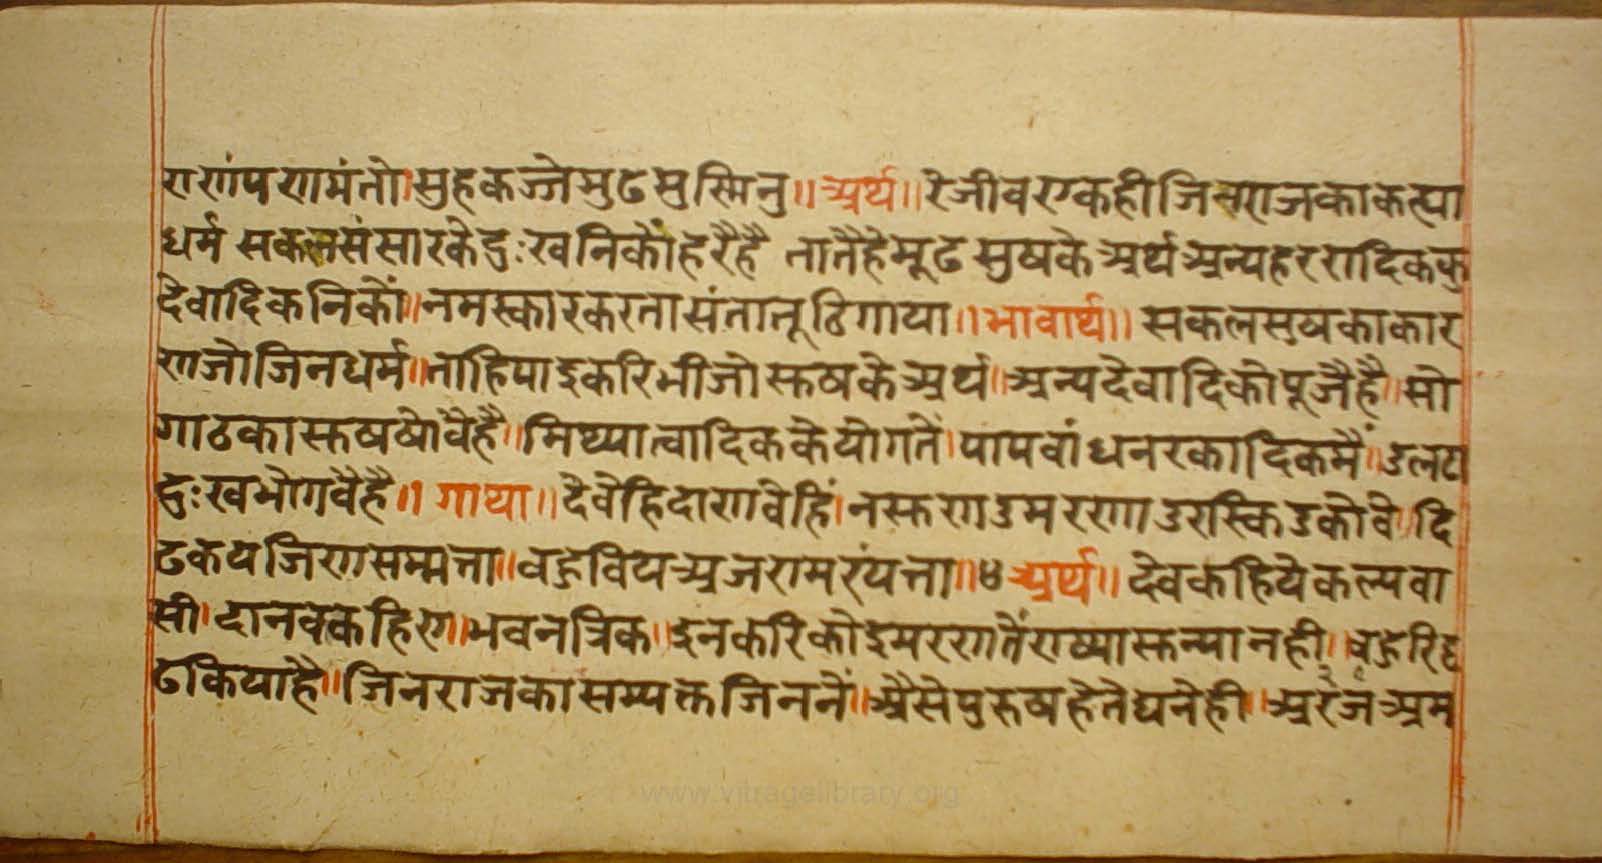 णाणं पणमंतो। सुहकज्जे मुढ मुसिनु॥ अर्थ॥ रे जीव एक ही जिनराज का कह्या
धर्म सकल संसार के दुःखनिकौं हरै है तातै हे मूढ सुष के अर्थ अन्य हररादिक कु
देवादिकनिकौं॥ नमस्कार करता संता तू ठिगाया॥ भावार्थ॥ सकल सुष का कार
ण जो जिनधर्म॥ ताहि पाइ करि भी जो सुष के अर्थ॥ अन्य देवादिको पूजै है॥ सो
गाठ का सुष षोवै है॥ मिथ्यात्वादिक के योगतैं। पाप वांध नरकादिक मैं॥ उलटा
दुःख भोगवै है॥१ गाथा॥ देवेहि दाणवेहिं। न सुणउ मरणाउ रस्किउ कोवि॥ दि
ढकय जिणसम्मत्ता॥ वहुविय अजरामरं पत्ता॥४ अर्थ॥ देव कहिये कल्पवा
सी। दानव कहिए॥ भवनत्रिक॥ इन करि कोइ मरणतैं राष्या सुन्या नही॥ बहुरि द्र
ढ किया है॥ जिनराज का सम्यक्त जिननें॥ अैसे पुरुष हे ते घने ही॥ अरजं अम
www.vitragelibrary.org